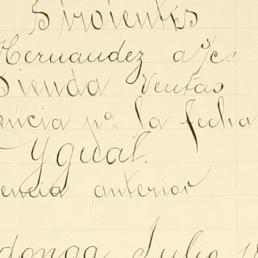 Sirvientes
Hernandez a/c
Tienda Ventas
encia pª la fecha
Ygual.
encia anterior
donga Julio 1